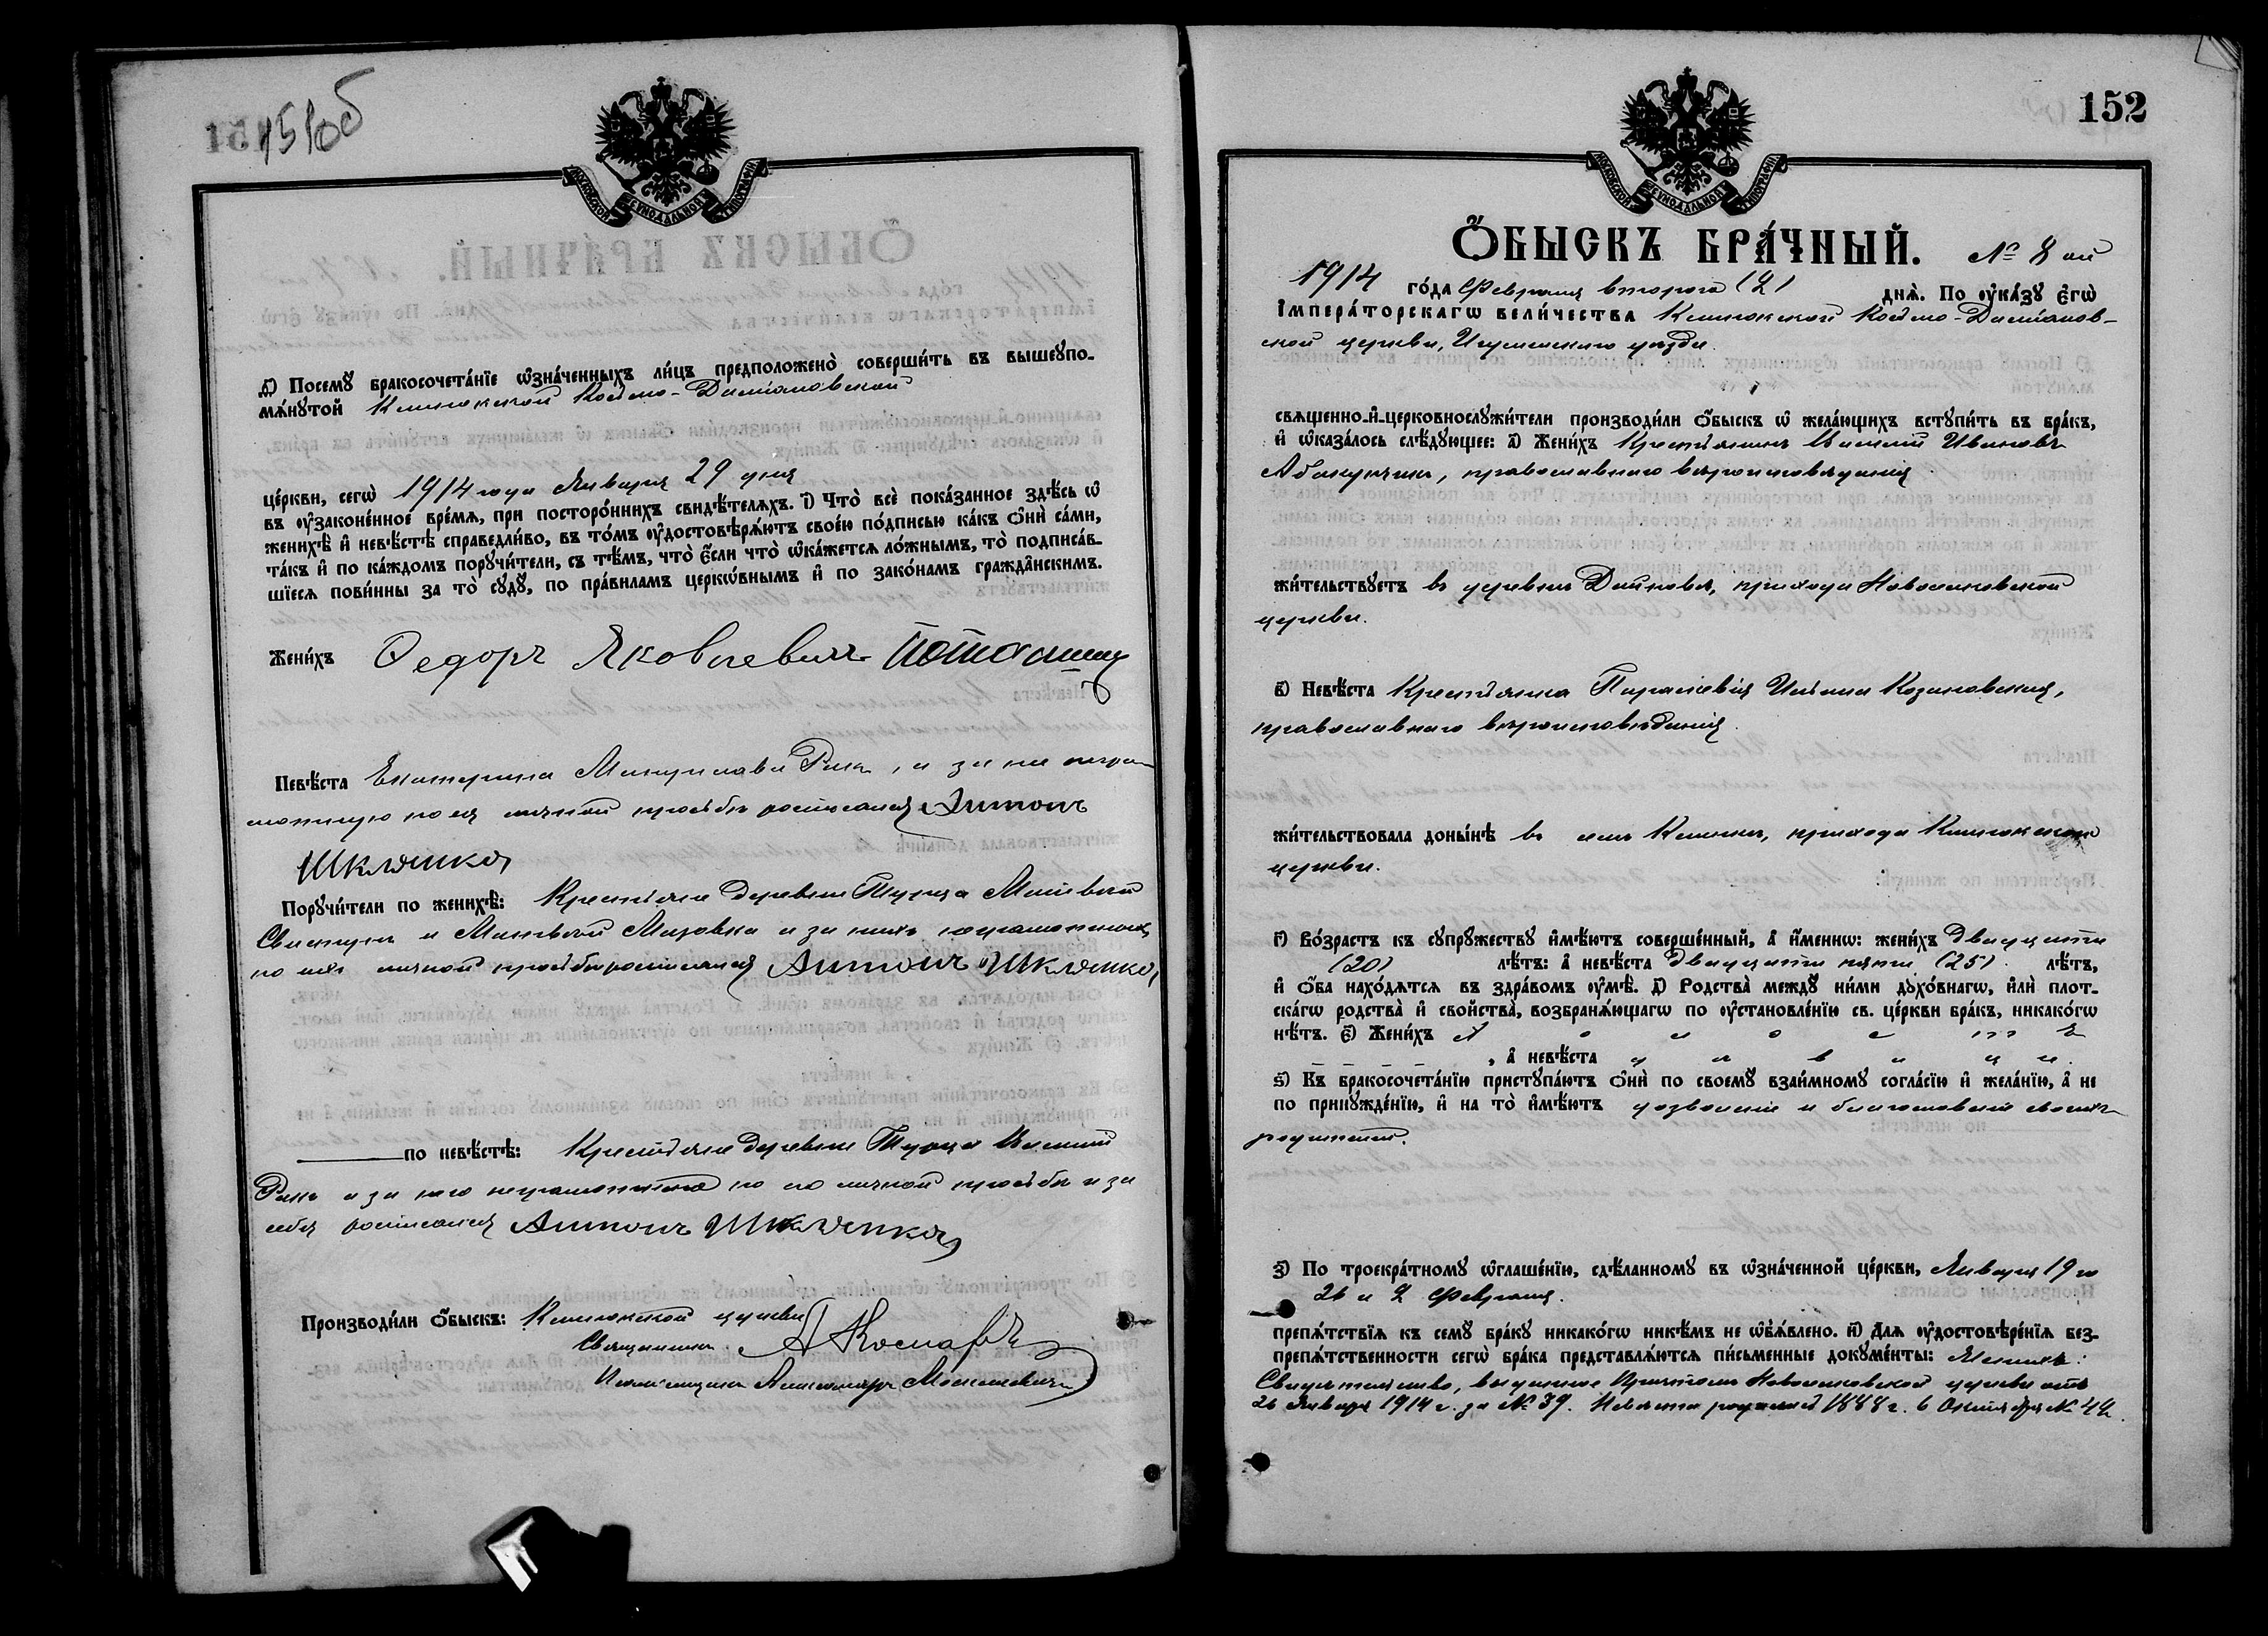 151об
МОСКОВСКОЙ СѴНОДАЛЬНОЙ ТИПОГРАФІИ
д҃) Посемꙋ бракосочета́нїе ѡ҆зна́ченныхъ ли́цъ предположено̀ соверши́ть въ вышеꙋпо-
мѧ́нꙋтой Клинокской Космо-Даміановской
це́ркви, сегѡ̀ 1914 года Января 29 дня
въ ᲂу҆законе́нное вре́мѧ, при посторо́ннихъ свидѣ́телѧхъ. і҃) Что̀ всѐ пока́занное здѣ́сь ѡ҆
женихѣ̀ и҆ невѣ́стѣ справедли́во, въ то́мъ ᲂу҆достовѣрѧ́ютъ свое́ю по́дписью ка́къ ѻ҆нѝ са́ми,
та́къ и҆ по ка́ждомъ порꙋчи́тели, съ тѣ́мъ, что̀ є҆́сли что̀ ѡ҆ка́жетсѧ ло́жнымъ, то̀ подписа́в-
шїесѧ пови́нны за то̀ сꙋдꙋ̀, по пра́виламъ церко́внымъ и҆ по зако́намъ гражда́нскимъ.
Жени́хъ Ѳедоръ Яковлевичъ
Невѣ́ста Екатерина Рака, и за не негра-
мотную по ея личной просьбѣ росписался Антонъ
Шклянка
Порꙋчи́тели по женихѣ̀: Крестьяне деревни Турца Матвей
и Матвей Мазовка и за нихъ неграмотныхъ
по ихъ личной просьбѣ росписался Антонъ Шклянка,
по невѣ́стѣ: Крестьяне деревни Турца Василій
Ракъ и за него неграмотнаго по его личной просьбѣ и за
себя росписался Антонъ Шклянка
Производи́ли ѻ҆́быскъ: Клинокской церкви
Священникъ А Комаръ
Псаломщикъ Александръ
152
МОСКОВСКОЙ СѴНОДАЛЬНОЙ ТИПОГРАФІИ
Ѻ҆́БЫСКЪ БРА́ЧНЫЙ. № 8 ой
1914 го́да Февраля второго (2) днѧ̀. По ᲂу҆ка́зꙋ є҆гѡ̀
І҆мпера́торскагѡ вели́чества Клинокской Космо-Даміанов-
ской церкви, Игуменскаго уѣзда.
свѧще́нно-и҆-церковнослꙋжи́тели производи́ли ѻ҆́быскъ ѡ҆ жела́ющихъ встꙋпи́ть въ бра́къ,
и҆ ѡ҆каза́лось слѣ́дꙋющее: а҃) Жени́хъ Крестьянинъ Василій Ивановъ
Абакунчикъ, православнаго вѣроисповѣданія
жи́тельствꙋетъ въ деревнѣ Дайновѣ, прихода Новоселковской
церкви.
в҃) Невѣ́ста Крестьянка Параскевія Ильина Козаковская,
православнаго вѣроисповѣданія.
жи́тельствовала доны́нѣ въ селѣ Клинкѣ, прихода Клинокской
церкви.
г҃) Во́зрастъ къ сꙋпрꙋ́жествꙋ и҆мѣ́ютъ соверше́нный, а҆ и҆́меннѡ: жени́хъ двадцати
(20) лѣ́тъ: а҆ невѣ́ста двадцати пяти (25) лѣ́тъ,
и҆ ѻ҆́ба нахо́дѧтсѧ въ здра́вомъ ᲂу҆мѣ̀. д҃) Родства̀ междꙋ ни́ми дꙋхо́внагѡ, и҆лѝ плот-
ска́гѡ родства̀ и҆ свойства̀, возбранѧ́ющагѡ по ᲂу҆становле́нїю св. це́ркви бра́къ, никако́гѡ
нѣ́тъ. є҃) Жени́хъ х о л о с т ъ
, а҆ невѣ́ста д ѣ в и ц а.
ѕ҃) Къ бракосочета́нїю пристꙋпа́ютъ ѻ҆нѝ по своемꙋ̀ взаи́мномꙋ согла́сїю и҆ жела́нїю, а҆ не
по принꙋжде́нїю, и҆ на то̀ и҆мѣ́ютъ дозволеніе и благословеніе своихъ
родителей.
з҃) По троекра́тномꙋ ѡ҆глаше́нїю, сдѣ́ланномꙋ въ ѡ҆зна́ченной це́ркви, Января 19 го
26 и 2 Февраля.
препѧ́тствїѧ къ семꙋ̀ бра́кꙋ никако́гѡ никѣ́мъ не ѡ҆б̾ѧ́влено. и҃) Длѧ ᲂу҆достовѣре́нїѧ без-
препѧ́тственности сегѡ̀ бра́ка представлѧ́ютсѧ пи́сьменные докꙋме́нты: Жениха:
Свидѣтельство, выданное Причтомъ Новоселковской церкви отъ
26 Января 1914 г. за № 39. Невѣста родилась 1888 г. 6 Октября № 44.